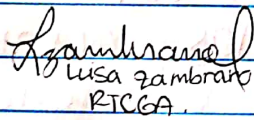 Lzambrano
Luisa zambrano
RTCGA.